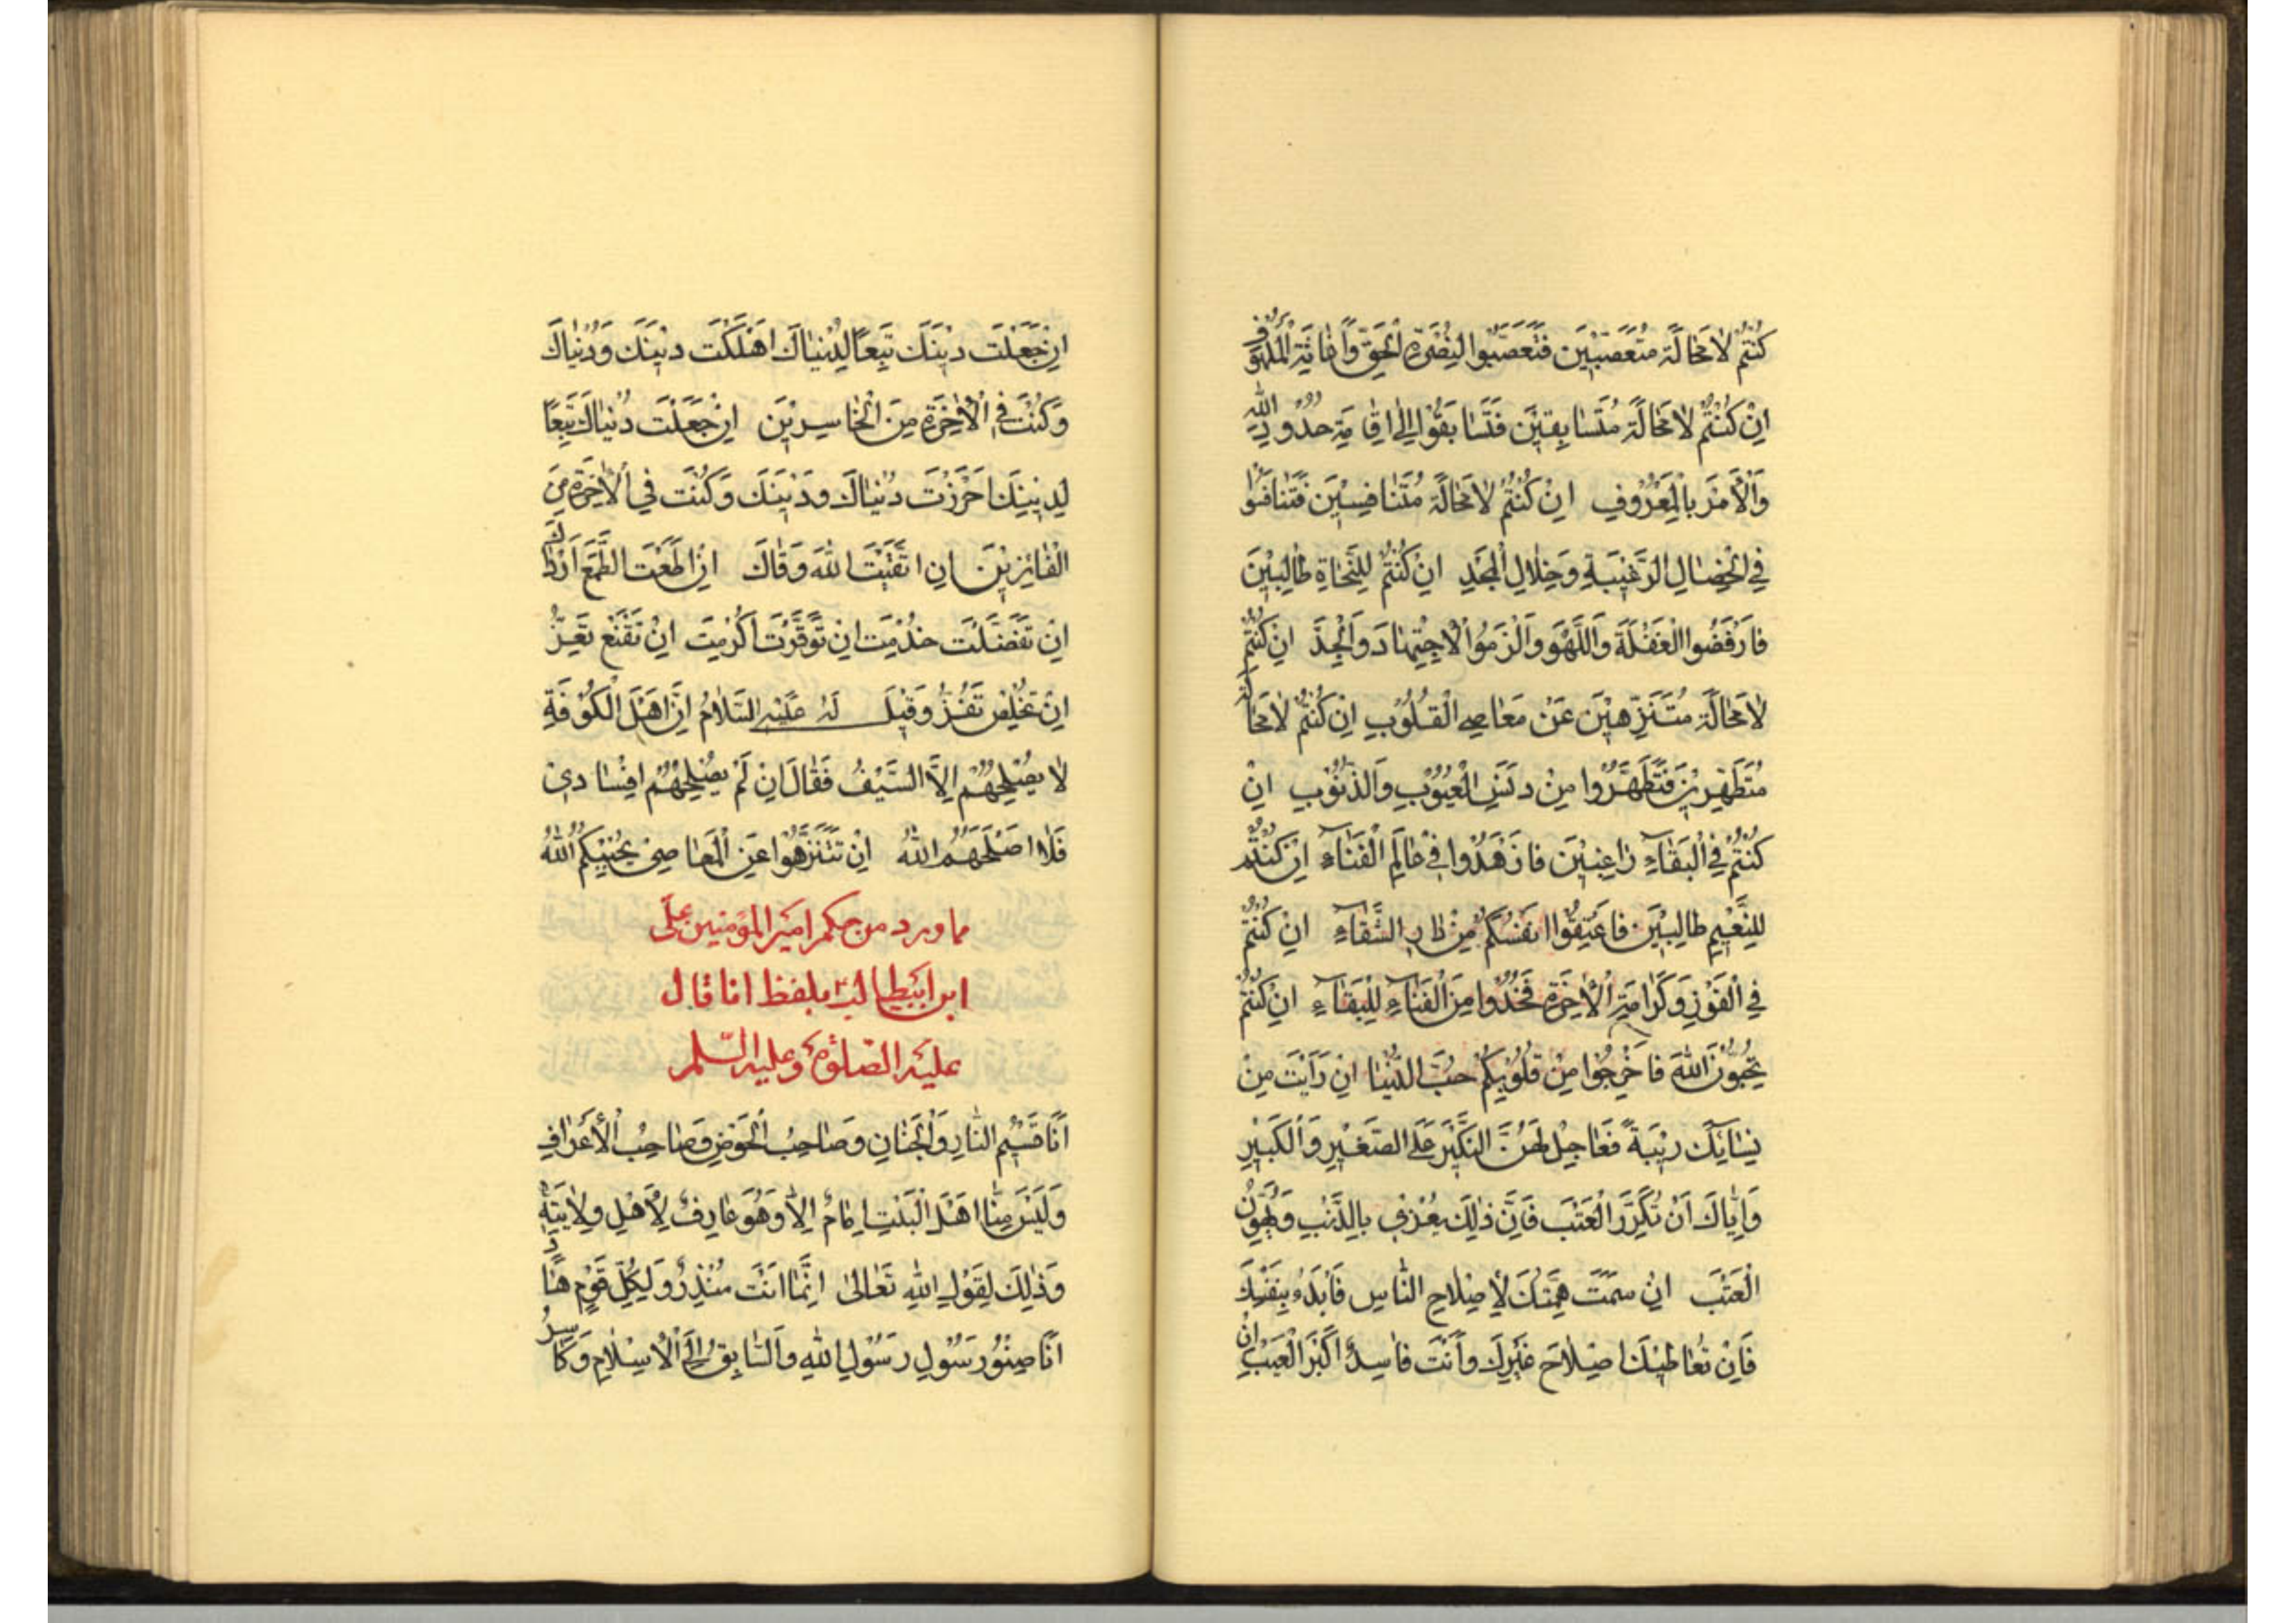 كُنْتُمْ لَا مَحَالَةَ مُتَعَصِّبِيْنَ فَتَعَصَّبُوا لِنُصْرَةِ الْحَقِّ وَاِغَاثَةِ الْمَلْهُوْفِ
اِنْ كُنْتُمْ لَا مَحَالَةَ مُتَسَابِقِيْنَ فَتَسَابَقُوْا اِلٰى اِقَامَةِ حُدُوْدِ اللّٰهِ
وَالْاَمْرَ بِالْمَعْرُوْفِ اِنْ كُنْتُمْ لَا مَحَالَةَ مُتَنَافِسِيْنَ فَتَنَافَسُوْا
فِي الْخِصَالِ الرَّغِيْبَةِ وَخِلَالِ الْمَجْدِ اِنْ كُنْتُمْ لِلنَّجَاةِ طَالِبِيْنَ
فَارْفَضُوا الْغَفْلَةَ وَاللَّهْوَ وَالْزَمُوا الْاِجْتِهَادَ وَالْجِدَّ اِنْ كُنْتُمْ
لَا مَحَالَةَ مُتَنَزِّهِيْنَ عَنْ مَعَاصِي الْقُلُوْبِ اِنْ كُنْتُمْ لَا مَحَالَةَ
مُتَطَهِّرِيْنَ فَتَطَهَّرُوْا مِنْ دَنَسِ الْعُيُوْبِ وَالذُّنُوْبِ اِنْ
كُنْتُمْ فِي الْبَقَآءِ رَاغِبِيْنَ فَازْهَدُوا فِيْ عَالَمِ الْفَنَآءِ اِنْ كُنْتُمْ
لِلنَّعِيْمِ طَالِبِيْنَ فَاعْتِقُوْا اَنْفُسَكُمْ مِنْ دَارِ الشَّقَآءِ اِنْ كُنْتُمْ
فِي الْفَوْزِ وَكَرَامَةِ الْاٰخِرَةِ فَخُذُوا مِنَ الْفَنَآءِ لِلْبَقَآءِ اِنْ كُنْتُمْ
تُحِبُّوْنَ اللّٰهَ فَاَخْرِجُوْا مِنْ قُلُوْبِكُمْ حُبَّ الدُّنْيَا اِنْ رَاَيْتَ مِنْ
نِسَآئِكَ رِيْبَةً فَعَاجِلْ لَهُنَّ النَّكِيْرَ عَلَى الصَّغِيْرِ وَالْكَبِيْرِ
وَاِيَّاكَ اَنْ تُكَرِّرَ الْعَتْبَ فَاِنَّ ذٰلِكَ يُغْرِيْ بِالذَّنْبِ وَيُهَوِّنُ
الْعَتْبَ اِنْ سَمَتْ هِمَّتُكَ لِاِصْلَاحِ النَّاسِ فَابْدَءْ بِنَفْسِكَ
فَاِنَّ تَعَاطِيْكَ اِصْلَاحَ غَيْرِكَ وَاَنْتَ فَاسِدٌ اَكْبَرُ الْعَيْبِ اِنْ
اِنْ جَعَلْتَ دِيْنَكَ تَبَعًا لِدُنْيَاكَ اَهْلَكْتَ دِيْنَكَ وَدُنْيَاكَ
وَكُنْتَ فِي الْاٰخِرَةِ مِنَ الْخَاسِرِيْنَ اِنْ جَعَلْتَ دُنْيَاكَ تَبَعًا
لِدِيْنِكَ اَحْرَزْتَ دُنْيَاكَ وَدِيْنَكَ وَكُنْتَ فِي الْاٰخِرَةِ مِنَ
الْفَائِزِيْنَ اِنِ اتَّقَيْتَ اللّٰهَ وَقَاكَ اِنْ اَطَعْتَ الطَّمَعَ اَرْدَاكَ
اِنْ تَفَضَّلْتَ خُدِمْتَ اِنْ تَوَقَّرْتَ اُكْرِمْتَ اِنْ تَقْنَعْ تَعِزُّ
اِنْ تُخْلِصْ تَفُزْ وَقِيْلَ لَهُ عَلَيْهِ السَّلَامُ اِنَّ اَهْلَ الْكُوْفَةِ
لَا يُصْلِحُهُمْ اِلَّا السَّيْفُ فَقَالَ اِنْ لَمْ يُصْلِحْهُمْ اِفْسَادِيْ
فَلَا اَصْلَحَهُمُ اللّٰهُ اِنْ تَتَنَزَّهُوْا عَنِ الْمَعَاصِيْ يُحْبِبْكُمُ اللّٰهُ
مما ورد من حكم امير المؤمنين على
ابن ابيطالب بلفظ انا قال
عليه الصلوة وعليه السلم
اَنَا قَسِيْمُ النَّارِ وَالْجِنَانِ وَصَاحِبُ الْحَوْضِ وَصَاحِبُ الْاَعْرَافِ
وَلَيْسَ مِنَّا اَهْلَ الْبَيْتِ اِمَامٌ اِلَّا وَهُوَ عَارِفٌ لِاَهْلِ وِلَايَتِهِ
وَذٰلِكَ لِقَوْلِ اللّٰهِ تَعَالٰى اِنَّمَا اَنْتَ مُنْذِرٌ وَلِكُلِّ قَوْمٍ هَادٍ
اَنَا صِنْوُ رَسُوْلِ رَسُوْلِ اللّٰهِ وَالسَّابِقُ اِلَى الْاِسْلَامِ وَكَاسِرُ